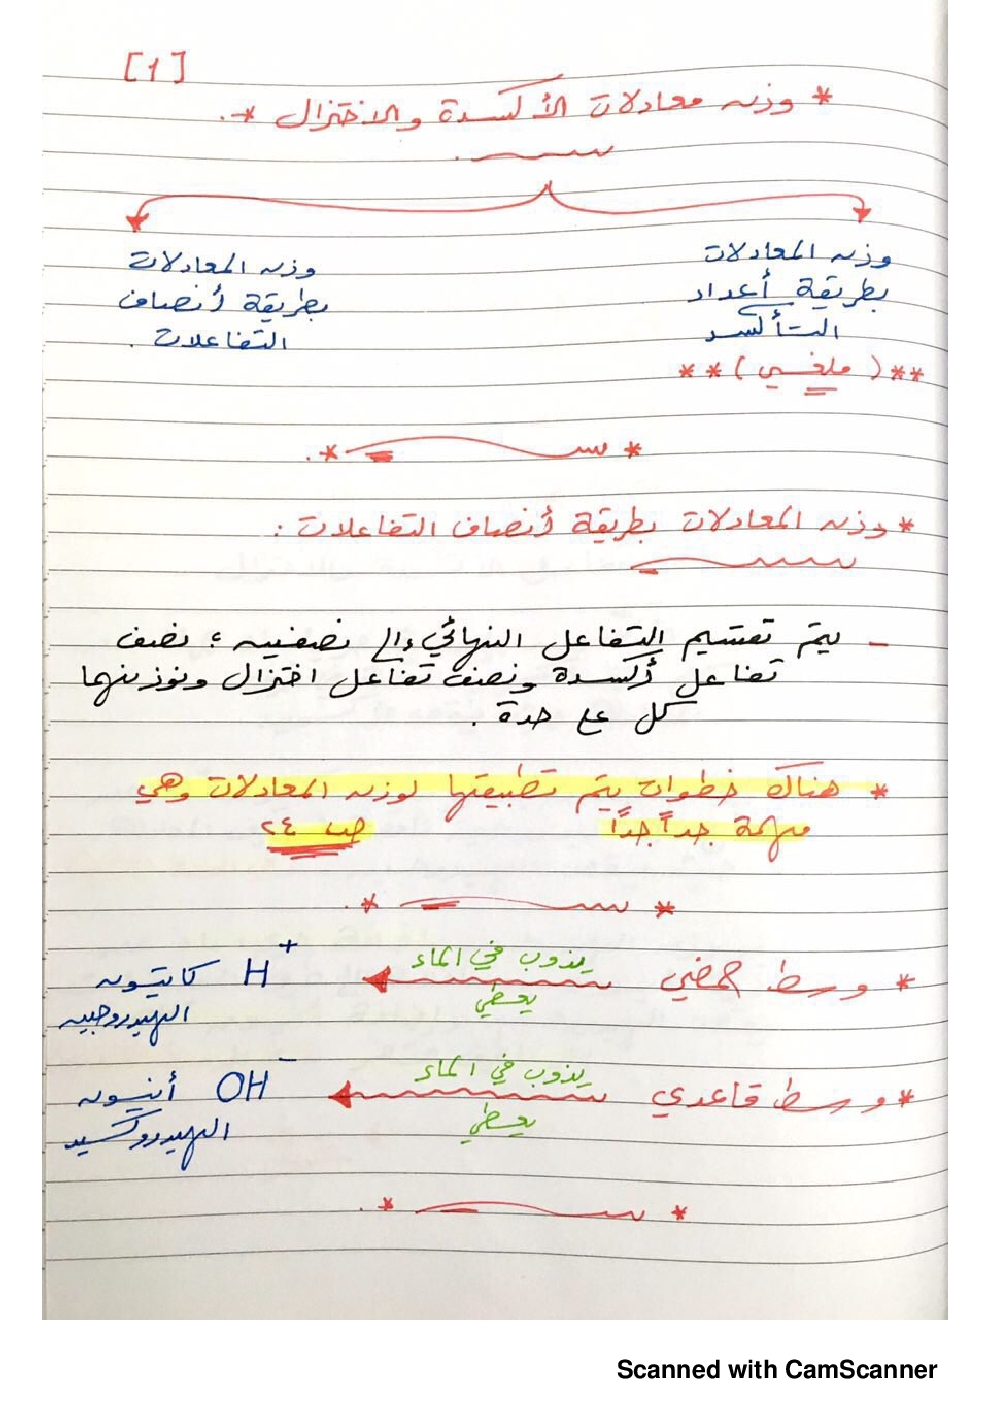 [١]
* وزن معادلات الأكسدة والاختزال *.
وزن المعادلات
بطريقة أعداد
التأكسد
** (ملغي) **
وزن المعادلات
بطريقة أنصاف
التفاعلات.
* وزن المعادلات بطريقة أنصاف التفاعلات:
- يتم تقسيم التفاعل النهائي إلى نصفين؛ نصف
تفاعل أكسدة ونصف تفاعل اختزال ونوزنهما
كل على حدة.
* هناك خطوات يتم تطبيقها لوزن المعادلات وهي
مهمة جداً جداً ص ٢٤
* وسط حمضي يذوب في الماء يعطي H+ كاتيون
الهيدروجين
* وسط قاعدي يذوب في الماء يعطي OH- أنيون
الهيدروكسيد
Scanned with CamScanner